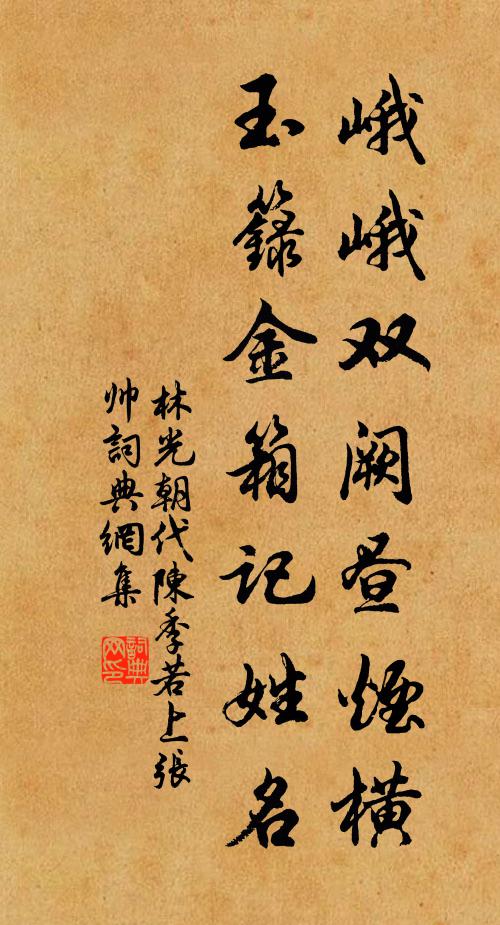 峨峨双阙昼烟横
玉籙金箱记姓名
林光朝代陳季若上張
帅詞典網集
詞典网印